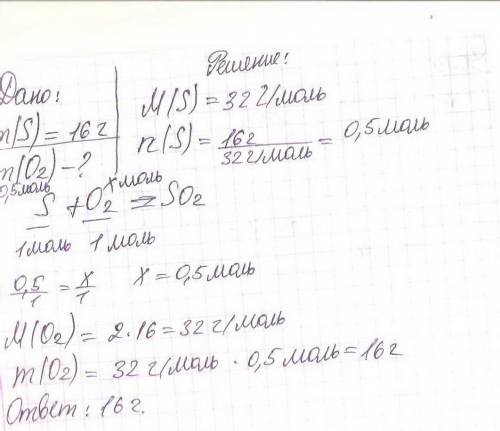 Дано:
m(S) = 16 г
m(O₂) - ?
Решение:
M(S) = 32 г/моль
n(S) = 16 г / 32 г/моль = 0,5 моль
0,5 моль x моль
S + O₂ = SO₂
1 моль 1 моль
0,5/1 = x/1 x = 0,5 моль
M(O₂) = 2·16 = 32 г/моль
m(O₂) = 32 г/моль · 0,5 моль = 16 г
Ответ: 16 г.